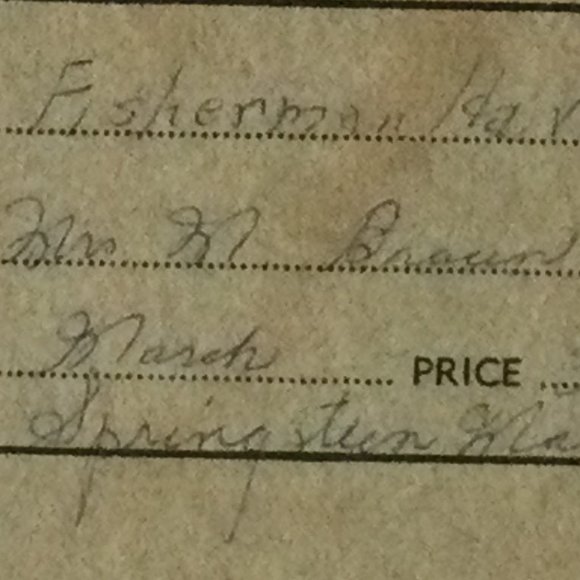 Fisherman Har
Mrs M. Braun
March PRICE
Springsteen Ma